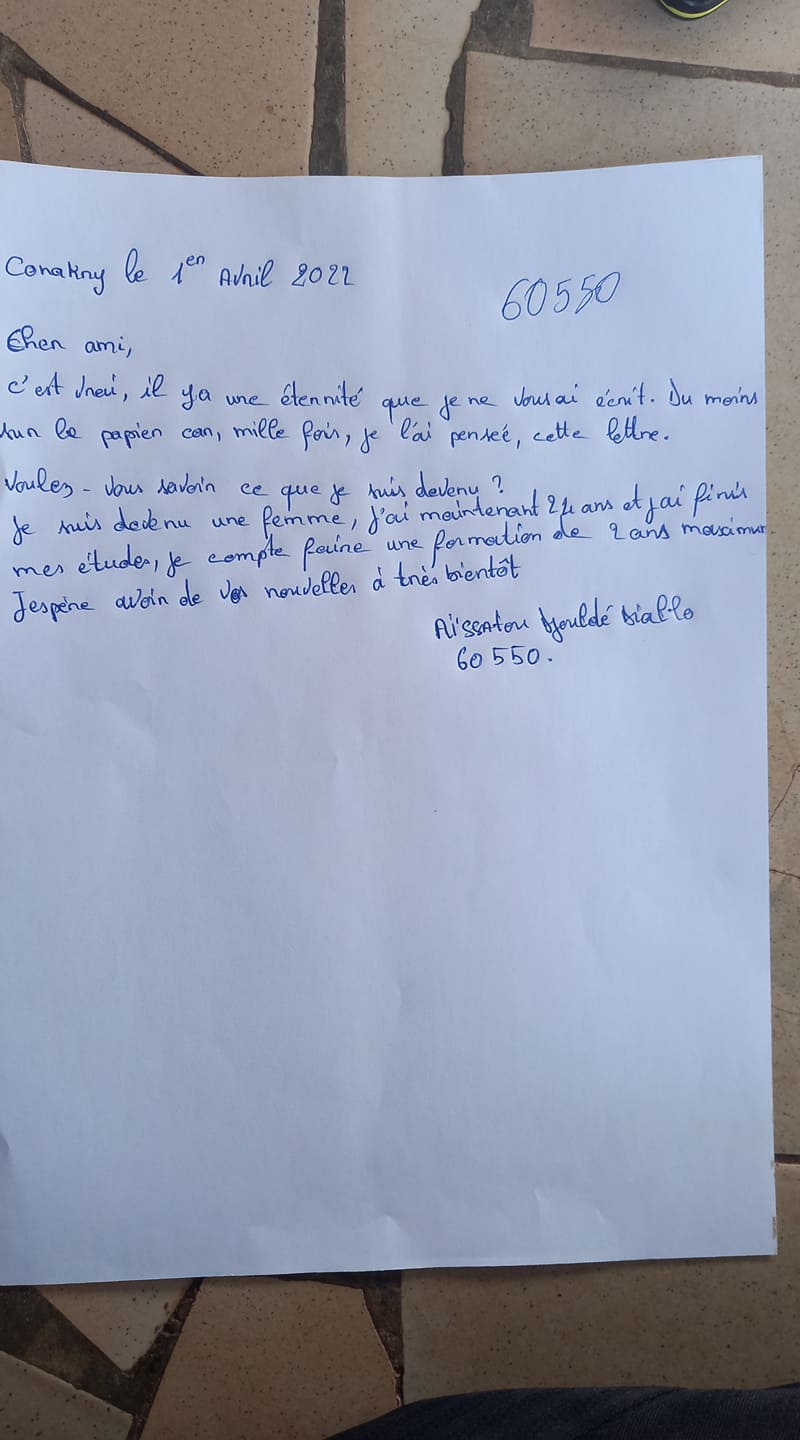 Conakry le 1er Avril 2022
60550
Cher ami,
c'est vrai, il ya une éternité que je ne vous ai écrit. Du moins
sur le papier car, mille fois, je l'ai pensée, cette lettre.
Voulez-vous savoir ce que je suis devenu ?
Je suis devenu une femme, J'ai maintenant 24 ans et j'ai finis
mes études, je compte faire une formation de 2 ans maximum
J'espère avoir de vos nouvelles à très bientôt
Aïssatou Djouldé Diallo
60550.